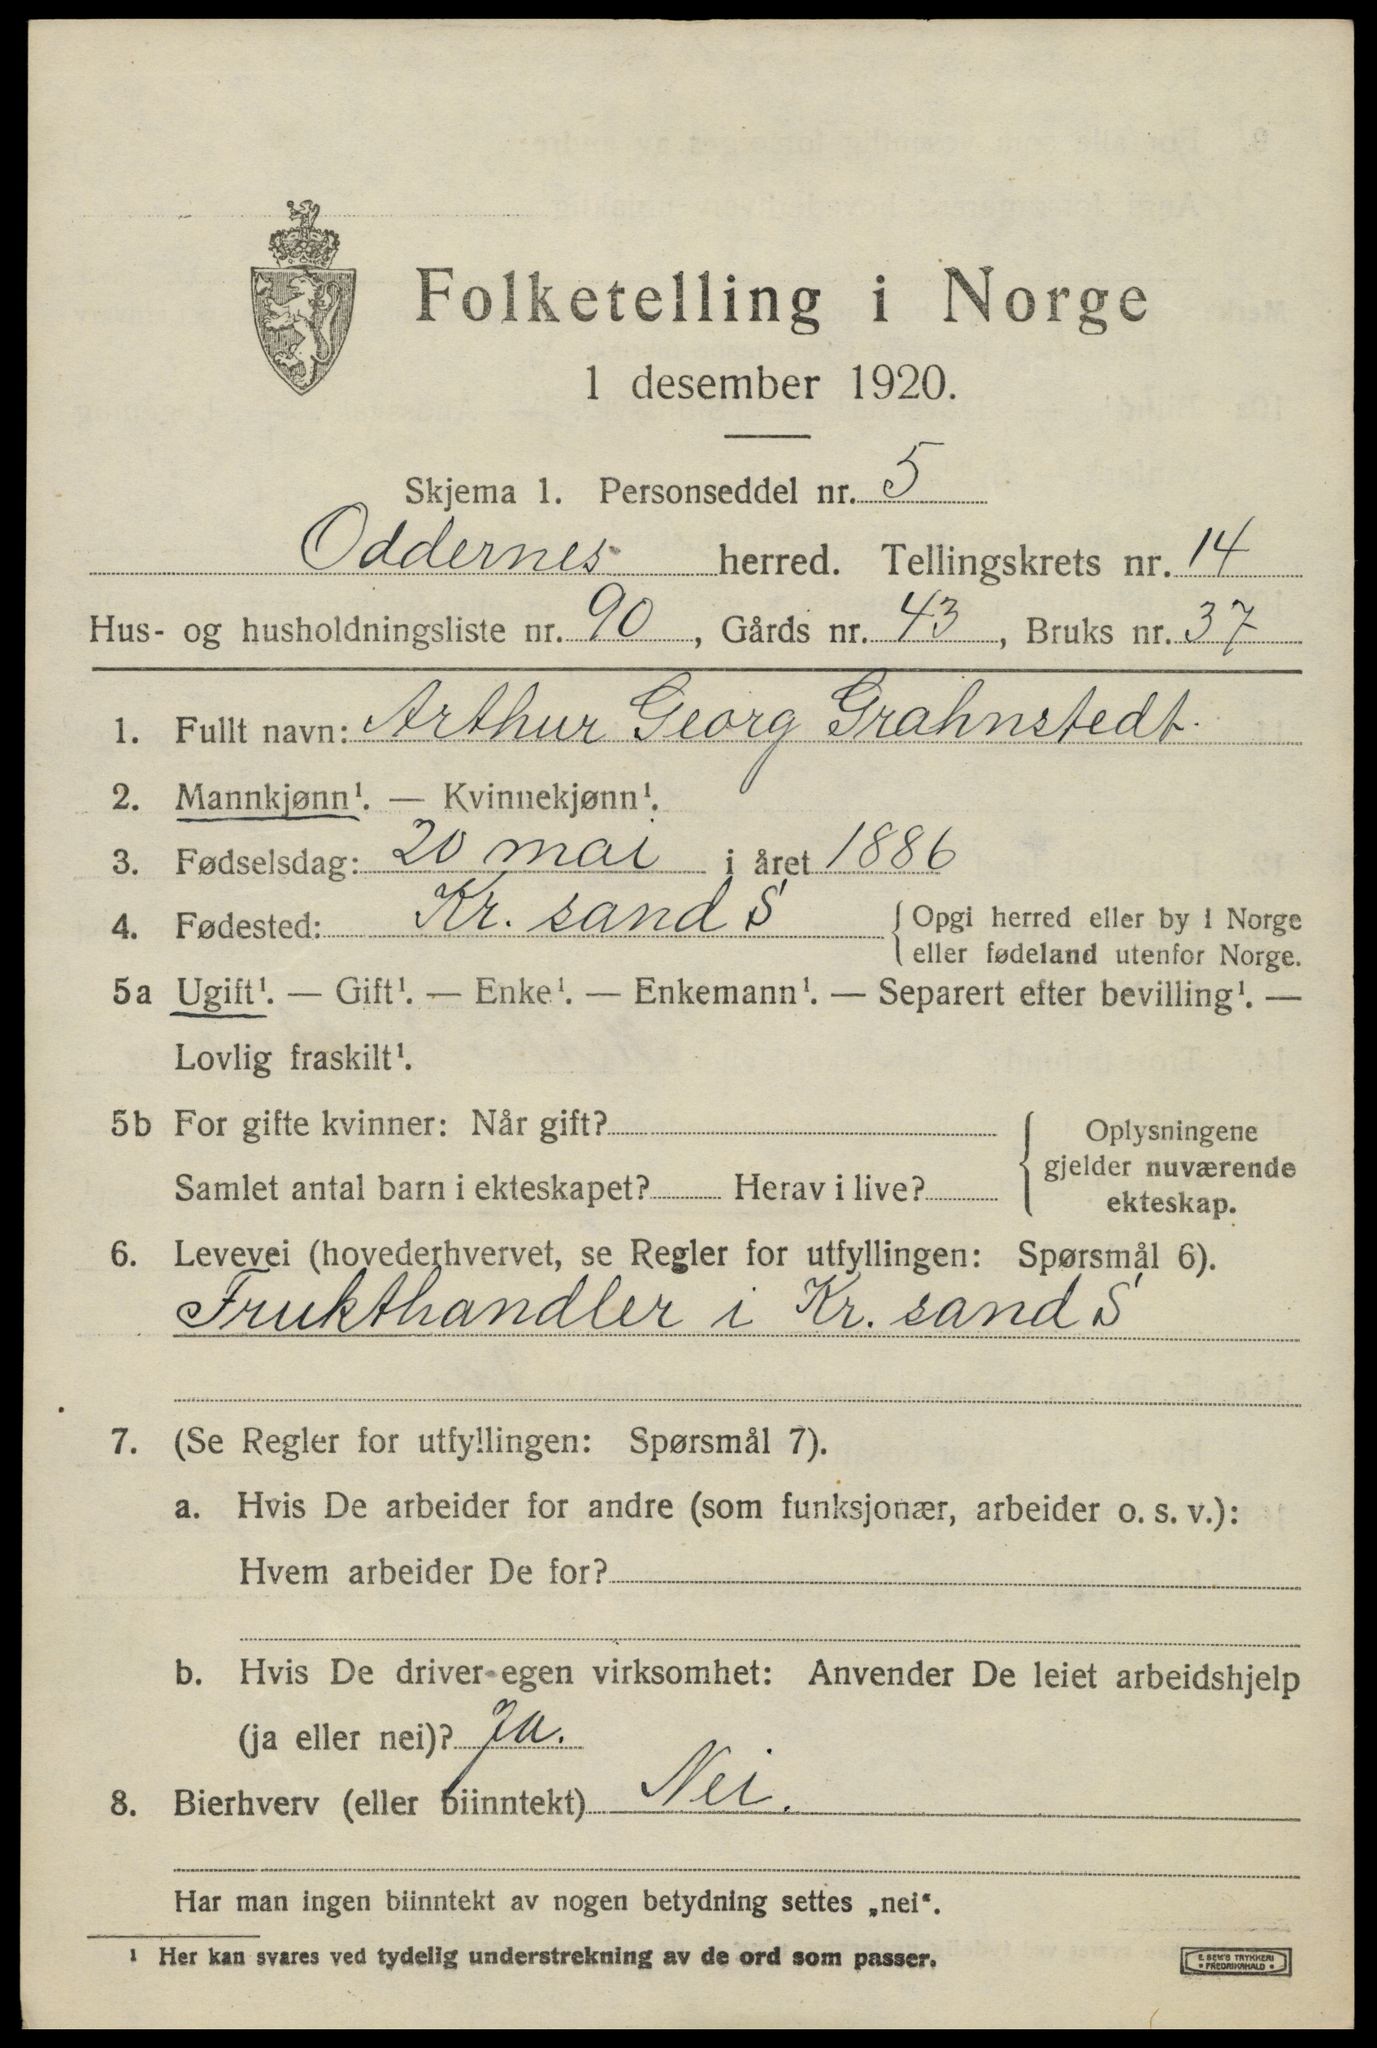 Folketelling i Norge
1 desember 1920.
Skjema 1. Personseddel nr. 5
Oddernes herred. Tellingskrets nr. 14
Hus- og husholdningsliste nr. 90, Gårds nr. 43, Bruks nr. 37
1. Fullt navn: Arthur Georg Grahnstedt.
2. Mannkjønn¹. — Kvinnekjønn¹.
3. Fødselsdag: 20 mai i året 1886
4. Fødested: Kr. sand S { Opgi herred eller by i Norge
eller fødeland utenfor Norge.
5a Ugift¹. — Gift¹. — Enke¹. — Enkemann¹. — Separert efter bevilling¹. —
Lovlig fraskilt¹.
5b For gifte kvinner: Når gift? { Oplysningene
gjelder nuværende
Samlet antal barn i ekteskapet? Herav i live?
ekteskap.
6. Levevei (hovederhvervet, se Regler for utfyllingen: Spørsmål 6).
Frukthandler i Kr. sand S
7. (Se Regler for utfyllingen: Spørsmål 7).
a. Hvis De arbeider for andre (som funksjonær, arbeider o. s. v.):
Hvem arbeider De for?
b. Hvis De driver egen virksomhet: Anvender De leiet arbeidshjelp
(ja eller nei)? Ja.
8. Bierhverv (eller biinntekt) Nei.
Har man ingen biinntekt av nogen betydning settes „nei“.
¹ Her kan svares ved tydelig understrekning av de ord som passer.
E. SEM'S TRYKKERI
• FREDRIKSHALD •